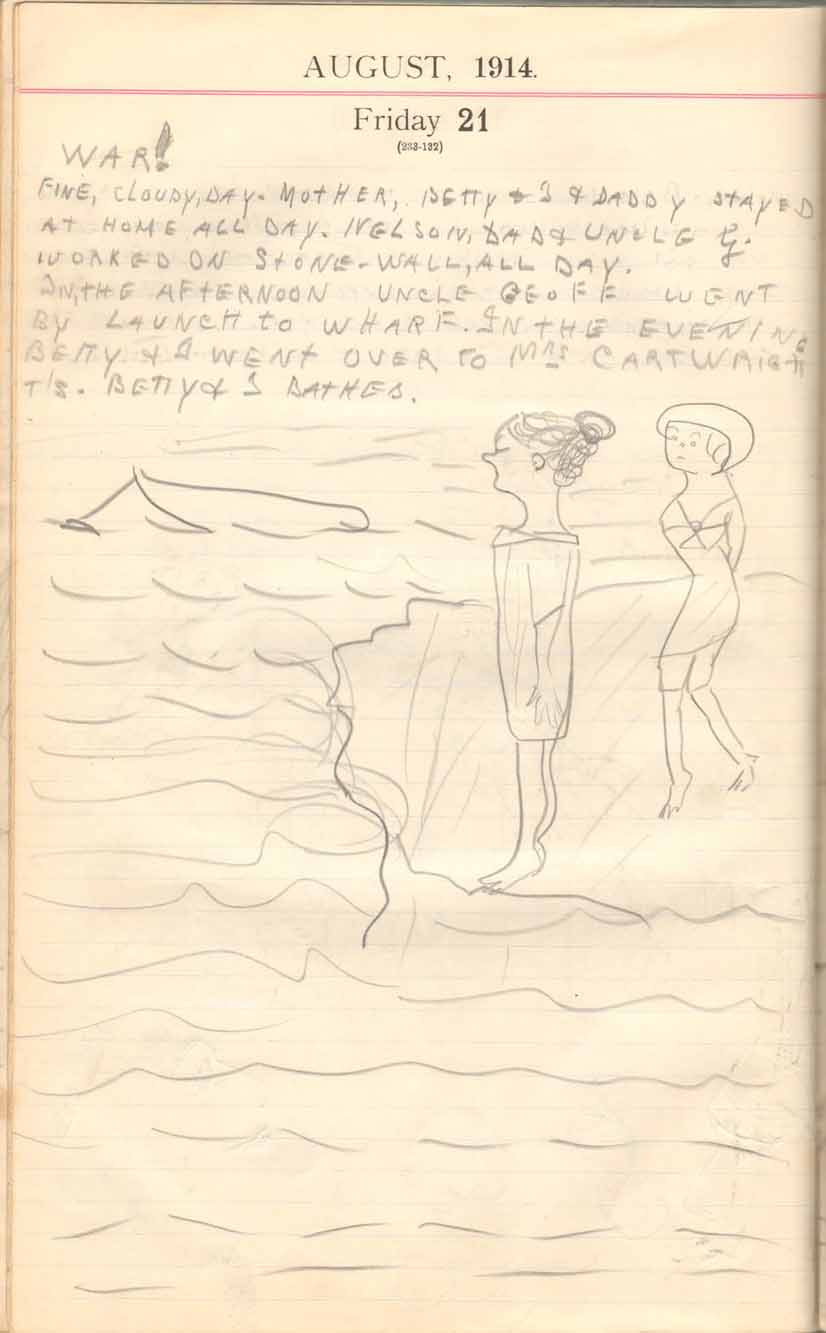 AUGUST, 1914.
Friday 21
(233-132)
WAR!
FINE, CLOUDY, DAY. MOTHER, BETTY & I & DADDY STAYED
AT HOME ALL DAY. NELSON, DAD & UNCLE G.
WORKED ON STONE-WALL, ALL DAY.
IN, THE AFTERNOON UNCLE GEOFF WENT
BY LAUNCH TO WHARF. IN THE EVENING
BETTY & I WENT OVER TO MRS CARTWRIGH
T'S. BETTY & I BATHED.